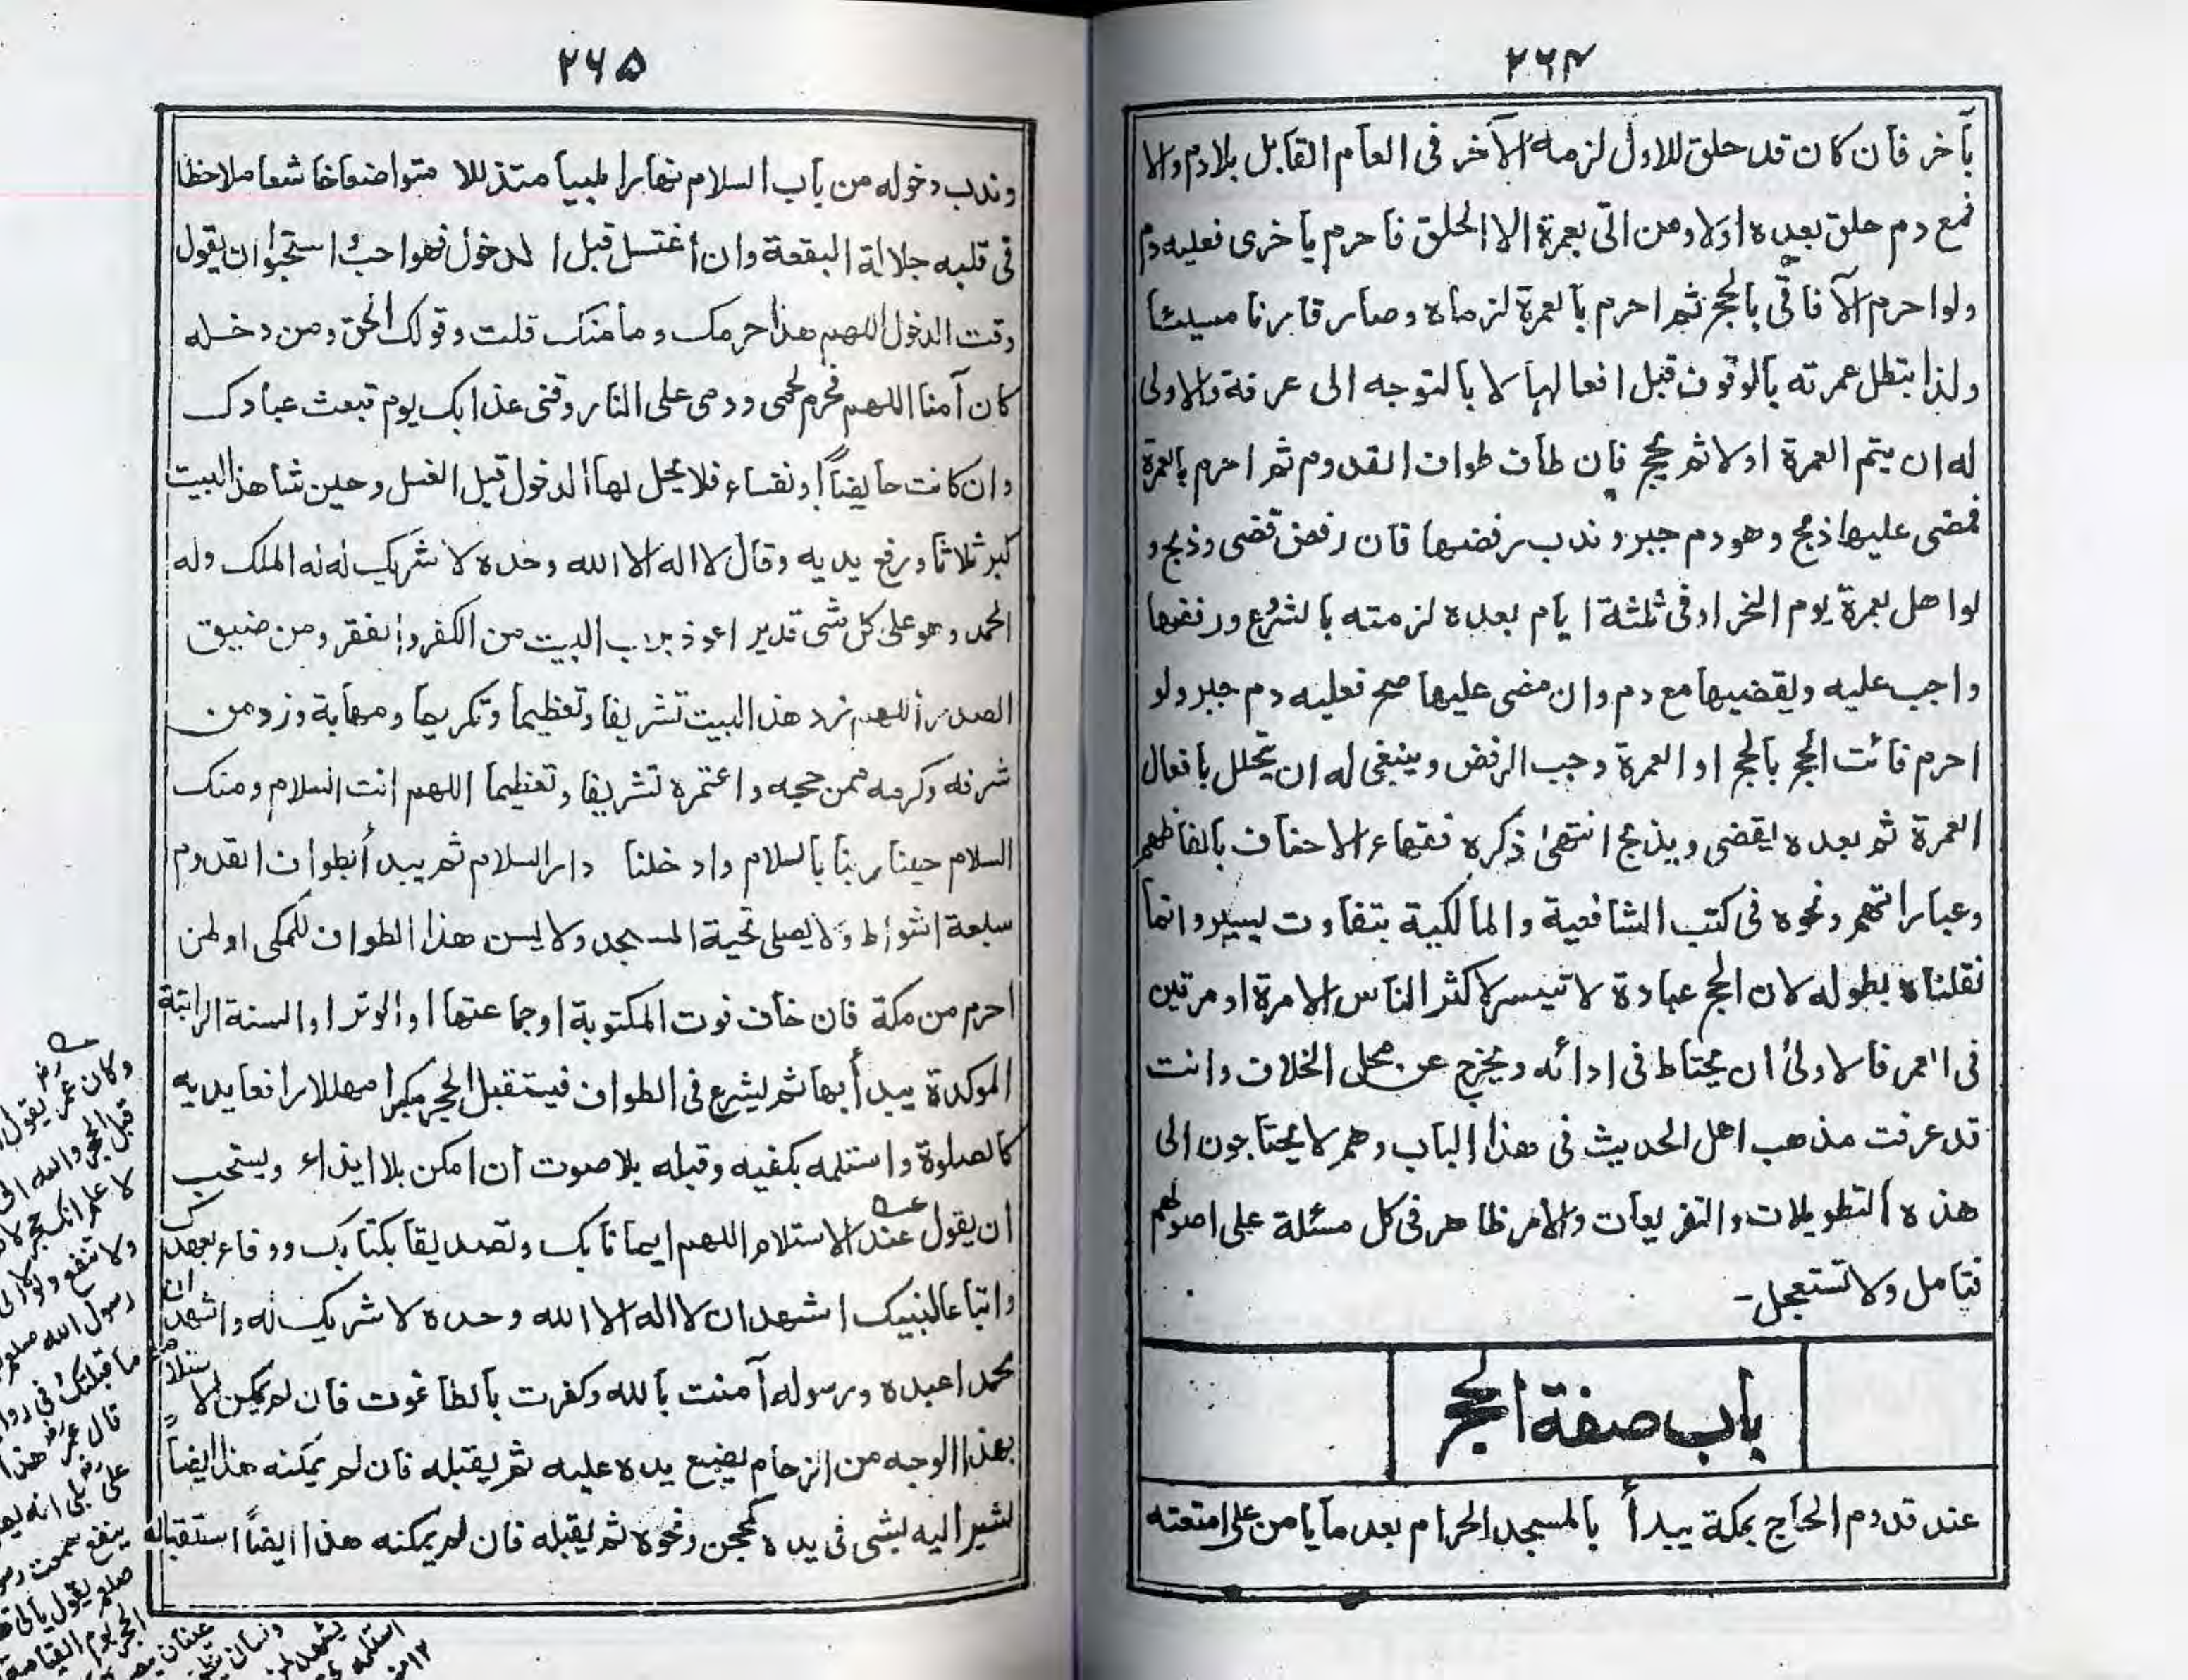 ۲۶۴
بآخر فان كان قد حلق للاول لزمه الآخر فى العام القابل بلا دم والا
فمع دم حلق بعده اولا ومن اتى بعمرة الا الحلق فاحرم باخرى فعليه دم
ولو احرم الآفاقى بالحج ثم احرم بالعمرة لزماه وصار قارنا مسيئا
ولذا بتطل عمرته بالوقوف قبل افعالها لا بالتوجه الى عرفة والاولى
له ان يتم العمرة اولا ثم يحج فان طاف طواف القدوم ثم احرم بالعمرة
فمضى عليها ذبح وهو دم جبر وندب رفضها فان رفض قضى وذبح و
لو اهل بعمرة يوم النحر او فى ثلثة ايام بعده لزمته بالشرع ورفضها
واجب عليه ويقضيها مع دم وان مضى عليها صح فعليه دم جبر ولو
احرم فائت الحج بالحج او العمرة وجب الرفض وينبغى له ان يتحلل بافعال
العمرة ثم بعده يقضى ويذبح انتهى ذكره فقهاء الاحناف بالفاظهم
وعباراتهم ونحوه فى كتب الشافعية والمالكية بتفاوت يسير وانما
نقلناه بطوله لان الحج عبادة لا تتيسر لاكثر الناس الا مرة او مرتين
فى العمر فالاولى ان يحتاط فى ادائه ويخرج عن محل الخلاف وانت
قد عرفت مذهب اهل الحديث فى هذا الباب وهم لا يحتاجون الى
هذه التطويلات والتفريعات والامر ظاهر فى كل مسئلة على اصولهم
فتامل ولا تستعجل-
باب صفة الحج
عند قدوم الحاج بمكة يبدأ بالمسجد الحرام بعد ما يامن على امتعته
۲۶۵
وندب دخوله من باب السلام نهارا ملبيا متذللا متواضعا خاشعا ملاحظا
فى قلبه جلالة البقعة وان اغتسل قبل الدخول فهو احب استحبوا ان يقول
وقت الدخول اللهم هذا حرمك ومامنك قلت وقولك الحق ومن دخله
كان آمنا اللهم فحرم لحمى ودمى على النار وقنى عذابك يوم تبعث عبادك
وان كانت حايضاً او نفساء فلا يحل لها الدخول قبل الغسل وحين شاهد البيت
كبر ثلاثا ورفع يديه وقال لا اله الا الله وحده لا شريك له له الملك وله
الحمد وهو على كل شى قدير اعوذ برب البيت من الكفر والفقر ومن ضيق
الصدر اللهم زد هذا البيت تشريفا وتعظيما وتكريما ومهابة وزد من
شرفه وكرمه ممن حجه واعتمره تشريفا وتعظيما اللهم انت السلام ومنك
السلام حينا ربنا بالسلام وادخلنا دار السلام ثم يبدأ بطواف القدوم
سبعة اشواط ولا يصلى تحية المسجد ولا يسن هذا الطواف للمكى او لمن
احرم من مكة فان خاف فوت المكتوبة او جماعتها او الوتر او السنة الراتبة
الموكدة يبدأ بها ثم ليشرع فى الطواف فيستقبل الحجر مكبرا مهللا رافعا يديه
كالصلوة واستلمه بكفيه وقبله بلا صوت ان امكن بلا ايذاء ويستحب
ان يقول عند الاستلام اللهم ايمانا بك وتصديقا بكتابك ووفاء بعهدك
واتباعا لنبيك اشهد ان لا اله الا الله وحده لا شريك له واشهد ان
محمدا عبده ورسوله آمنت بالله وكفرت بالطاغوت فان لم يمكن الاستلام
بهذا الوجه من الزحام يضع يده عليه ثم يقبله فان لم يمكنه هذا ايضاً
يشير اليه بشى فى يده كمحجن ونحوه ثم يقبله فان لم يمكنه هذا ايضاً استقباله
وكان عمر رض يقول
قبل الحجر والله انى
لا علم انك حجر لا
ولا تنفع ولولا
رسول الله صلعم
ما قبلتك فى
قال عمر رض هذا
على رض بلى انه
ينفع سمعت
صلعم يقول يأتى
الحجر يوم القيامة